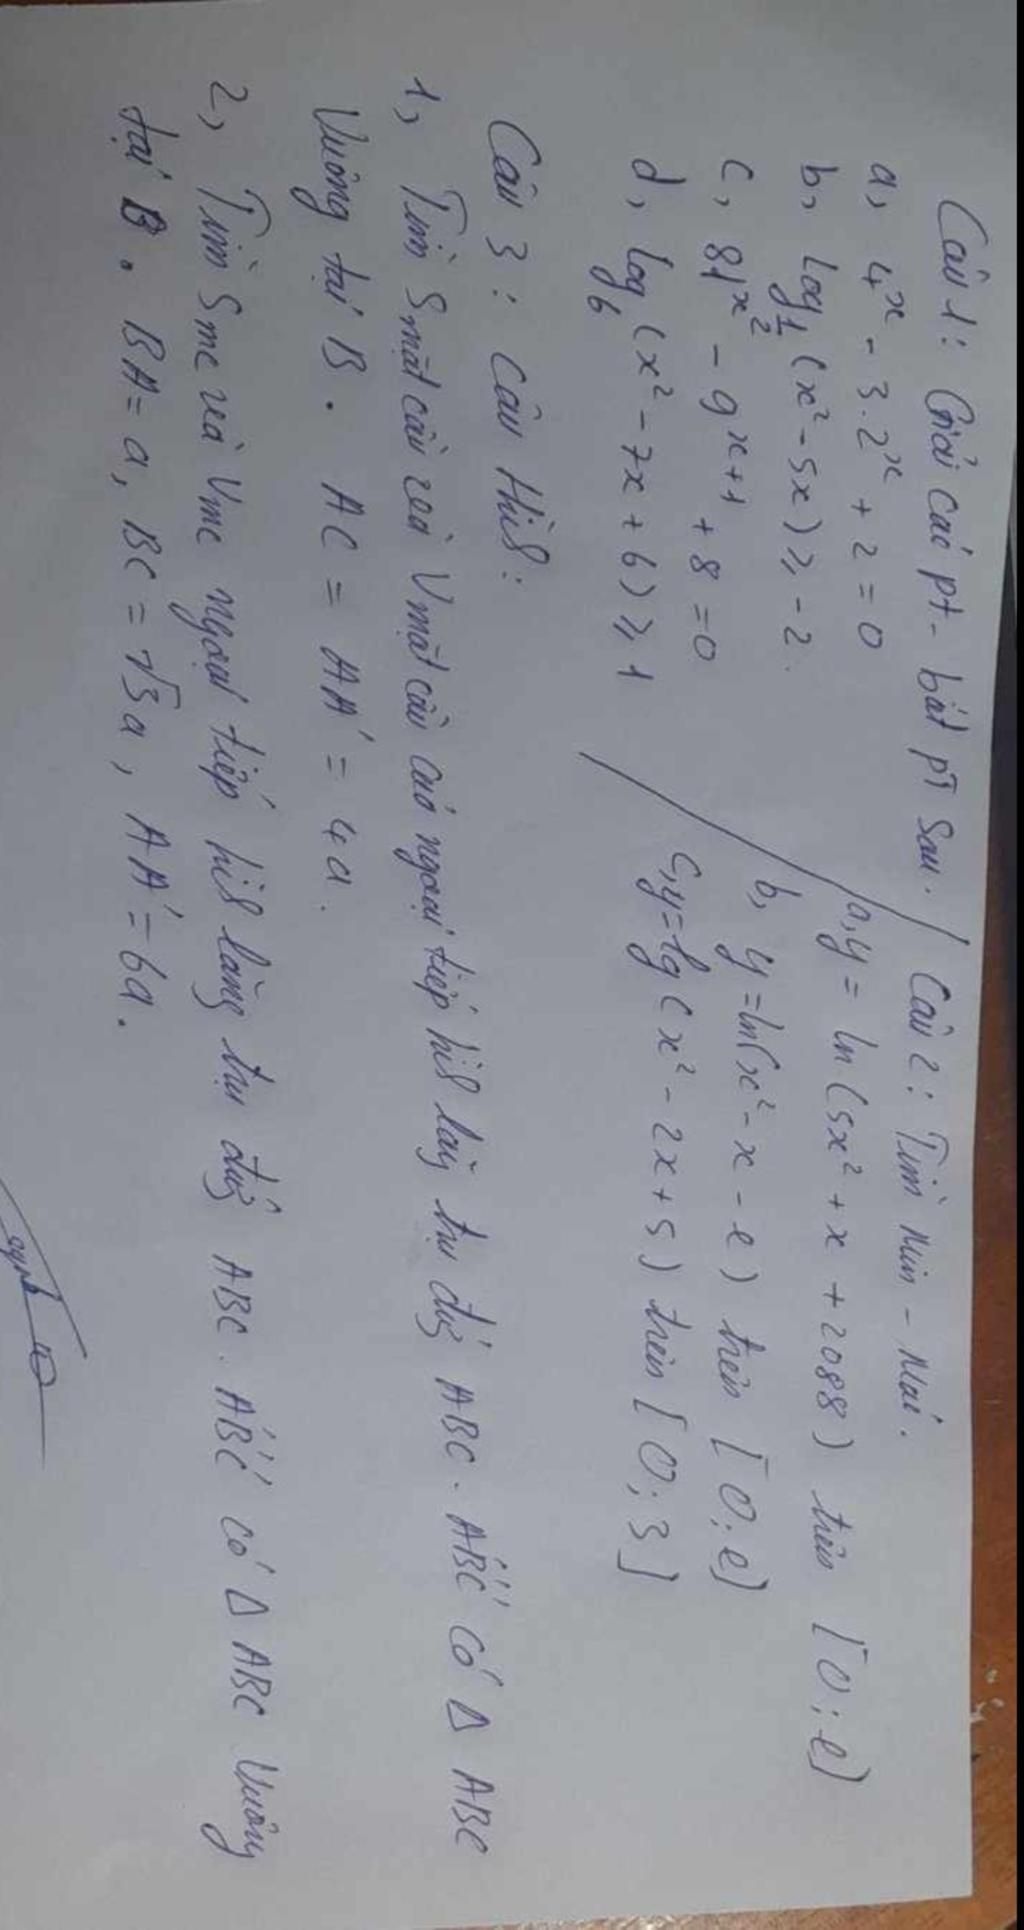 Câu 1: Giải các pt - bất pt sau.
a, 4^x - 3.2^x + 2 = 0
b, log_{1/2} (x² - 5x) ≥ -2.
c, 81^{x²} - 9^{x+1} + 8 = 0
d, log_6 (x² - 7x + 6) ≥ 1
Câu 2: Tìm Min - Max.
a, y = ln (5x² + x + 2088) trên [0; e]
b, y = ln(x² - x - e) trên [0; e]
c, y = lg (x² - 2x + 5) trên [0; 3]
Câu 3: Câu Hình:
1, Tìm S mặt cầu và V mặt cầu của ngoại tiếp hình lăng trụ đứng ABC.A'B'C' có Δ ABC
Vuông tại B. AC = AA' = 4a.
2, Tìm Smc và Vmc ngoại tiếp hình lăng trụ đứng ABC.A'B'C' có Δ ABC Vuông
tại B. BA = a, BC = √3a, AA' = 6a.